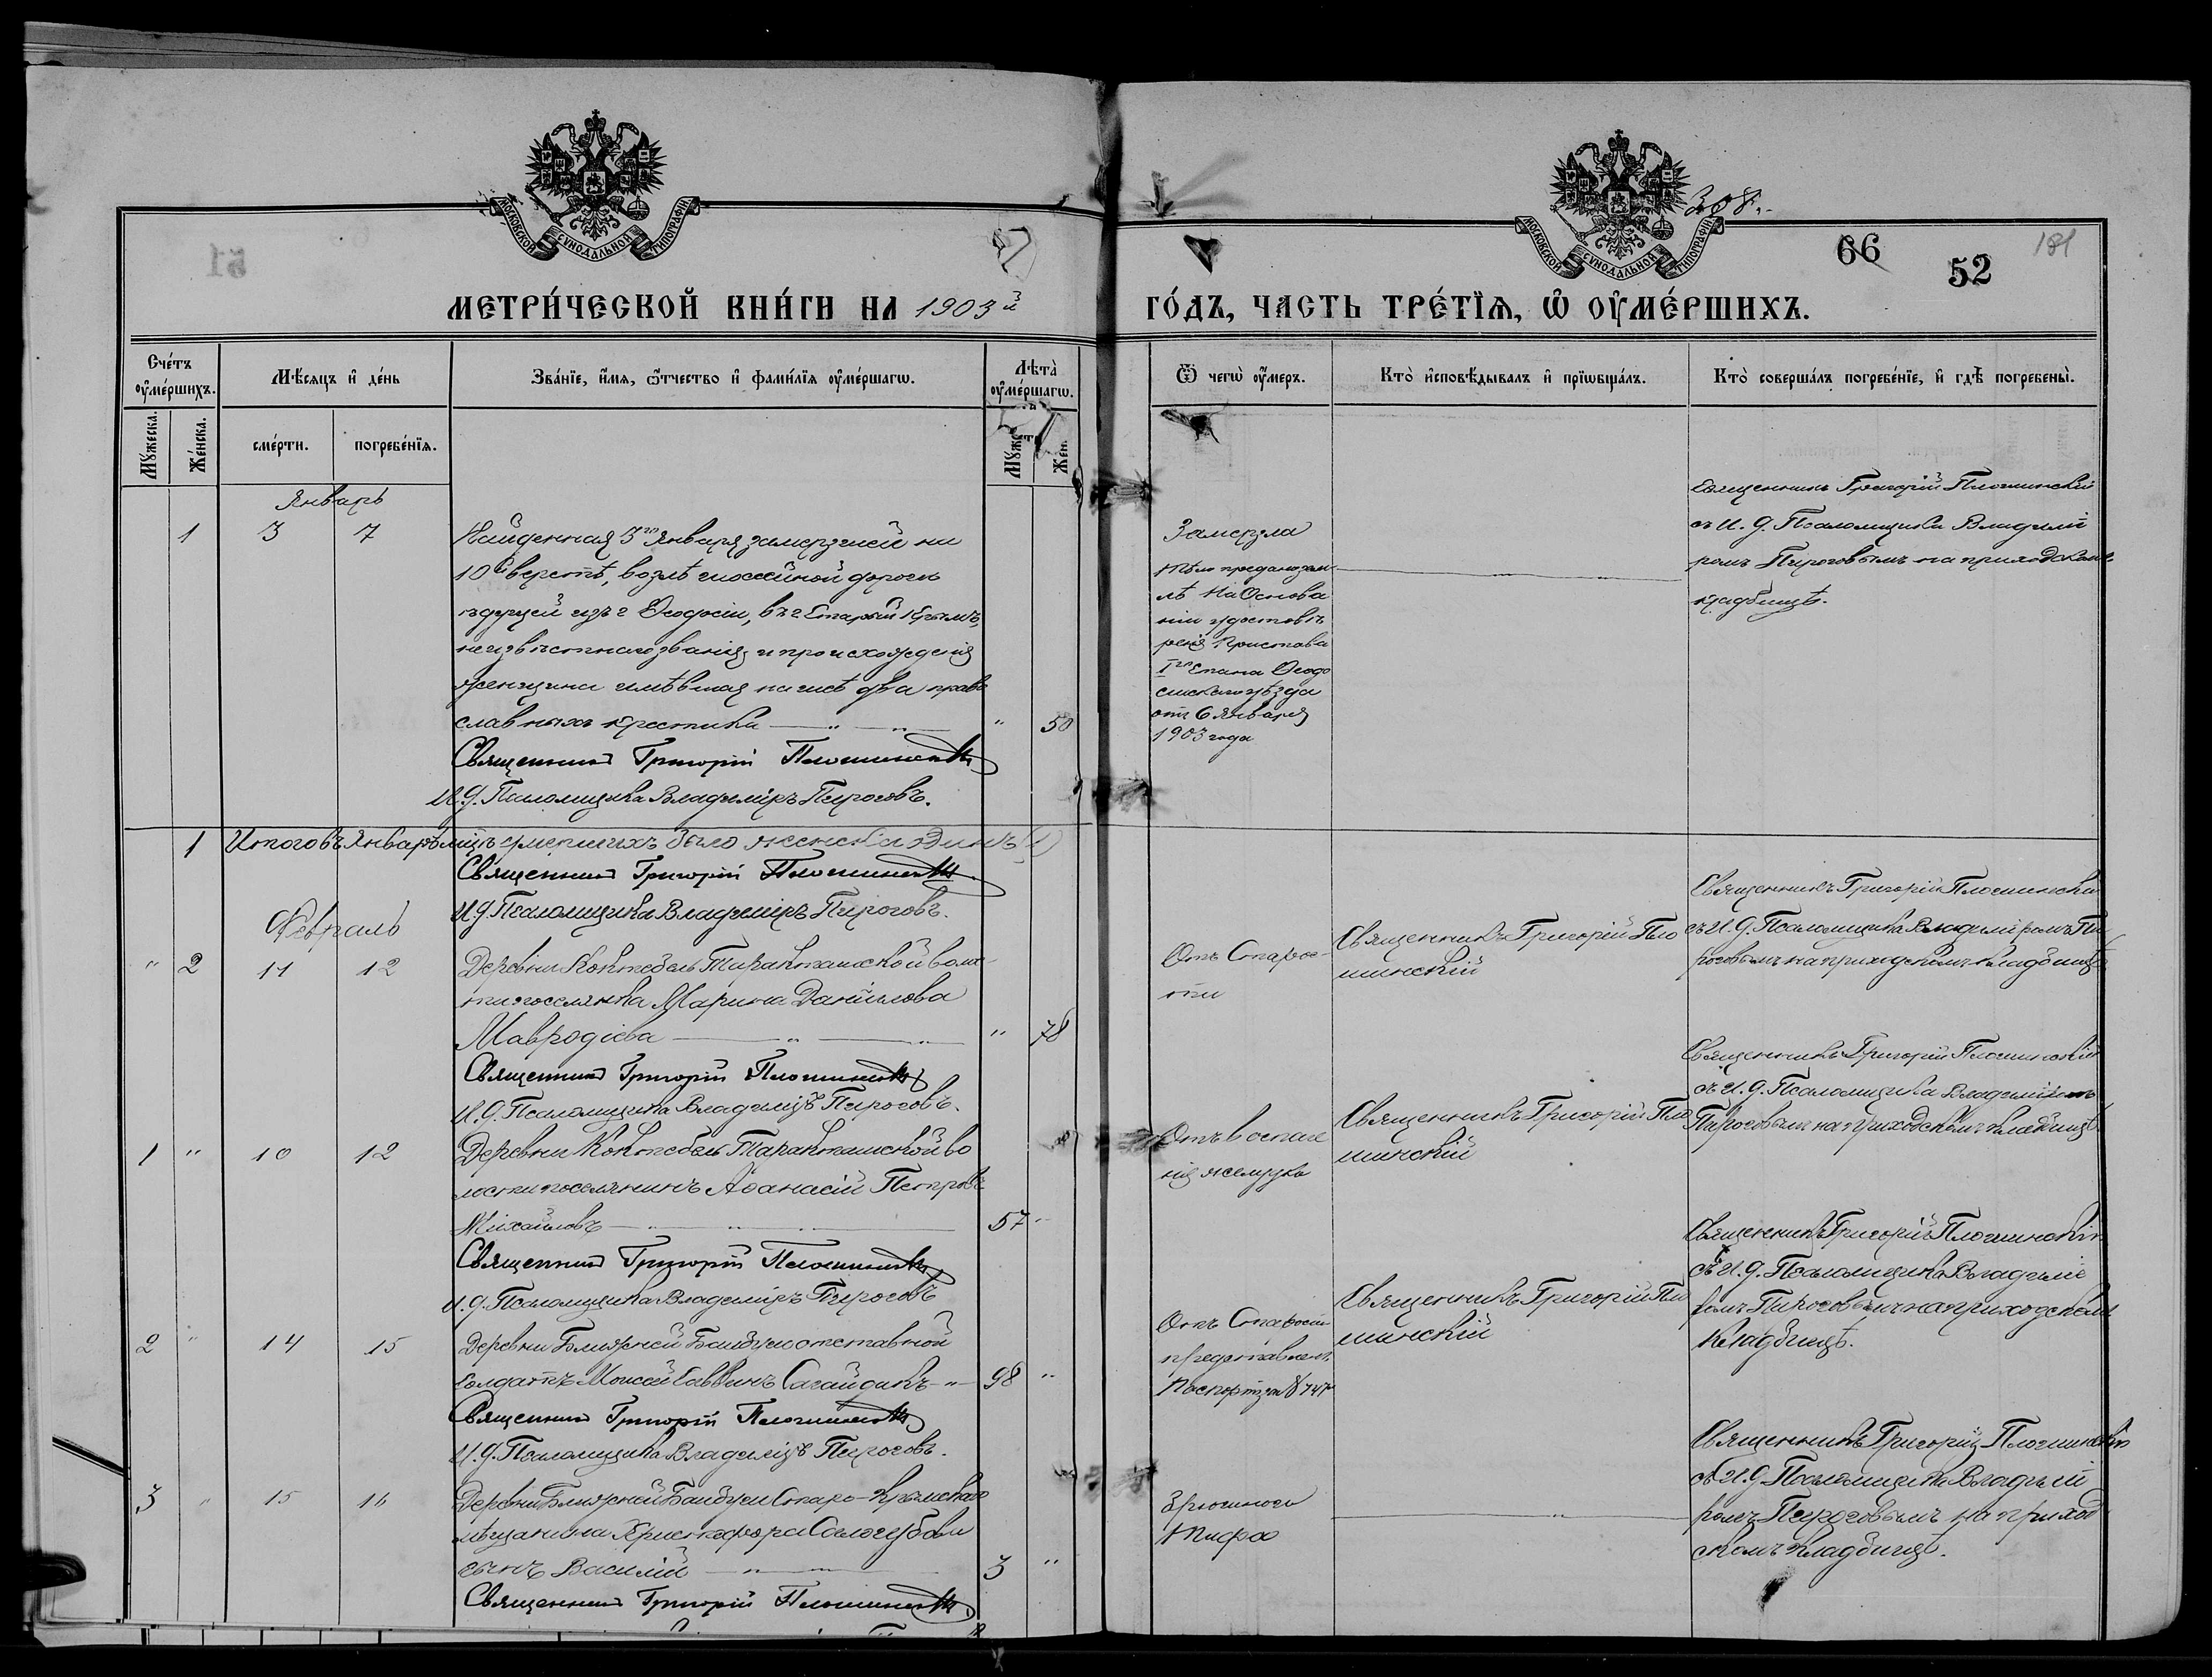 МОСКОВСКОЙ СѴНОДАЛЬНОЙ ТИПОГРАФІИ
МОСКОВСКОЙ СѴНОДАЛЬНОЙ ТИПОГРАФІИ
308
66
52
181
51
МЕТРИ́ЧЕСКОЙ КНИ́ГИ НА 1903й
ГО́ДЪ, ЧАСТЬ ТРЕ́ТЇѦ, Ѡ ОУ҆МЕ́РШИХЪ.
Сче́тъ оу҆ме́ршихъ.
Мꙋ́жеска.
Же́нска.
Мѣ́сяцъ и҆ де́нь
сме́рти.
погребе́нїя.
Зва́нїе, и҆́мя, ѻ҆́тчество и҆ фами́лїя оу҆ме́ршагѡ.
Лѣта̀ оу҆ме́ршагѡ.
Мꙋ́жс
Жен.
Ѿ чегѡ̀ оу҆́меръ.
Кто̀ и҆сповѣ́дывалъ и҆ прїѡбща́лъ.
Кто̀ соверша́лъ погребе́нїе, и҆ гдѣ̀ погребены̀.
Январь
1 3 7
Найденная 3го Января замерзшей на
10й верстѣ, возлѣ шоссейной дороги
идущей изъ г Ѳеодосіи, въ г Старый Крымъ,
неизвѣстнаго званія и происхожденія
женщина имѣвшая на шеѣ два право
славныхъ крестика — " — " 50
Священникъ Григорій Плошинскій
И.д. Псаломщика Владиміръ Пироговъ.
Замерзла
тѣло предано зем
лѣ на Основа
ніи удостовѣ
ренія Пристава
Iго Стана Ѳеодо
сійскаго уѣзда
отъ 6 Января
1903 года
Священникъ Григорій Плошинскій
съ И.д. Псаломщика Владимі
ромъ Пироговымъ на приходском
кладбищѣ.
1 Итого въ Январѣ мцѣ умершихъ было женска одинъ (1)
Священникъ Григорій Плошинскій
И.д. Псаломщика Владиміръ Пироговъ.
Февраль
" 2 11 12
Деревни Коктебель Таракташской воло
сти поселянка Марина Даніилова
Мавродіева — " — " " 78
Священникъ Григорій Плошинскій
И.д. Псаломщика Владиміръ Пироговъ.
Отъ Старос
ти
Священникъ Григорій Пло
шинскій
Священникъ Григорій Плошинскій
съ И.д. Псаломщика Владиміромъ Пи
роговымъ на приходскомъ кладбищѣ
1 " 10 12
Деревни Коктебель Таракташской во
лости поселянинъ Аѳанасій Петровъ
Михайловъ — " — " — " 57 "
Священникъ Григорій Плошинскій
И.д. Псаломщика Владиміръ Пироговъ
Отъ воспале
нія желудка
Священникъ Григорій Пло
шинскій
Священникъ Григорій Плошинскій
съ И.д. Псаломщика Владиміромъ
Пироговымъ на приходскомъ кладбищѣ
2 " 14 15
Деревни Ближней Байбуги отставной
Солдатъ Моисей Саввинъ Сагайдикъ — " — 98 "
Священникъ Григорій Плошинскій
И.д. Псаломщика Владиміръ Пироговъ.
Отъ Старости
представленъ
Паспортъ за № 747
Священникъ Григорій Пло
шинскій
Священникъ Григорій Плошинскій
съ И.д. Псаломщика Владимі
ромъ Пироговымъ на приходском
кладбищѣ.
3 " 15 16
Деревни Ближней Байбуги Старо-Крымскаго
мѣщанина Христофора
сынъ Василій — " — 3 "
Священникъ Григорій Плошинскій
Брюшного
тифа
Священникъ Григорій Плошинскій
съ И.д. Псаломщика Владимі
ромъ Пироговымъ на приход
скомъ кладбищѣ.